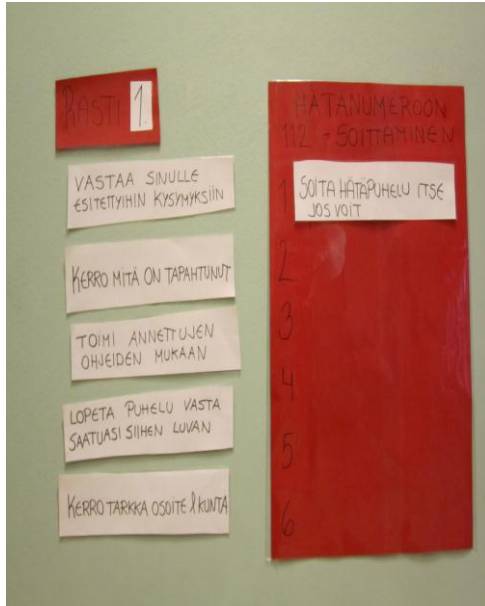 RASTI 1.
VASTAA SINULLE
ESITETTYIHIN KYSYMYKSIIN
KERRO MITÄ ON TAPAHTUNUT
TOIMI ANNETTUJEN
OHJEIDEN MUKAAN
LOPETA PUHELU VASTA
SAATUASI SIIHEN LUVAN
KERRO TARKKA OSOITE & KUNTA
HÄTÄNUMEROON
112 - SOITTAMINEN
1 SOITA HÄTÄPUHELU ITSE
JOS VOIT
2
3
4
5
6